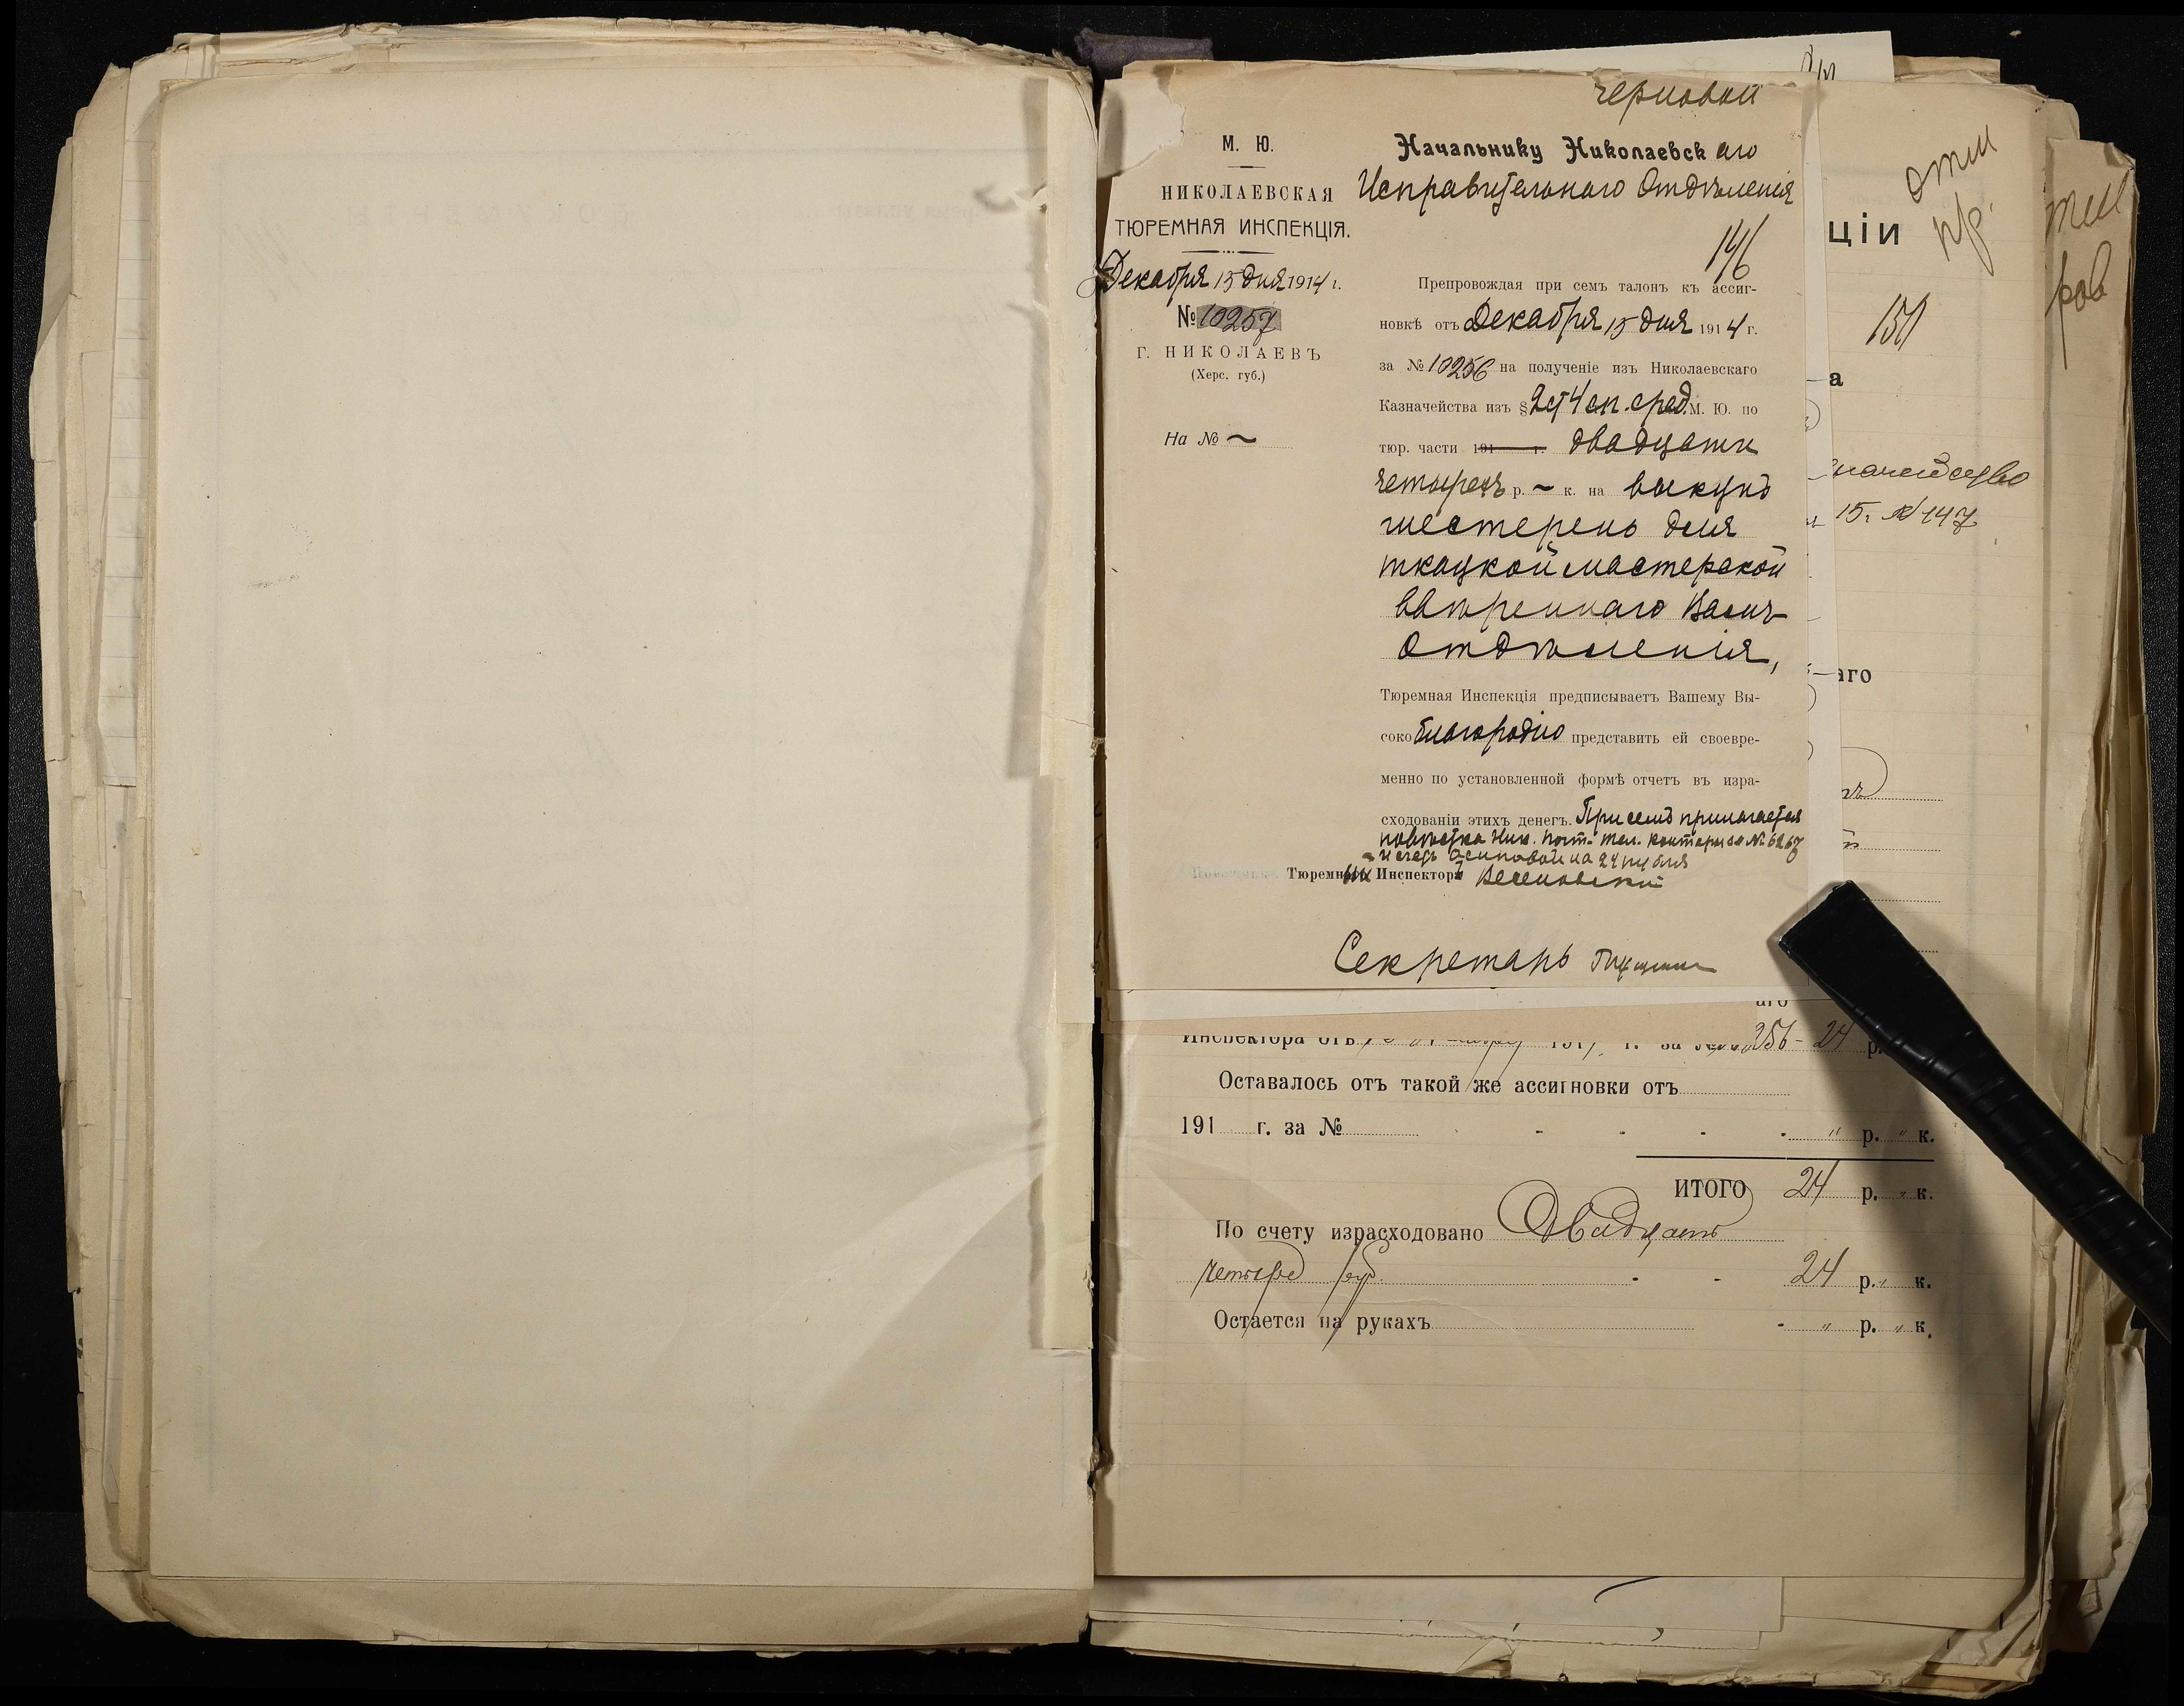 Черновой
М. Ю.
НИКОЛАЕВСКАЯ
ТЮРЕМНАЯ ИНСПЕКЦІЯ.
Декабря 15 дня 1914 г.
№ 10257
Г. НИКОЛАЕВЪ
(Херс. губ.)
На № ~
Начальнику Николаевскаго
Исправительнаго Отдѣленія
146
Препровождая при семъ талонъ къ ассиг-
новкѣ отъ Декабря 15 дня 1914 г.
за № 10256 на полученіе изъ Николаевскаго
Казначейства изъ § 2 ст 4 сп. сред. М. Ю. по
тюр. части 191 г. двадцати
четырехъ р. ~ к. на выкупъ
шестерень для
ткацкой мастерской
ввѣреннаго Вамъ
Отдѣленія,
Тюремная Инспекція предписываетъ Вашему Вы-
сокоблагородію представить ей своевре-
менно по установленной формѣ отчетъ въ изра-
сходованіи этихъ денегъ. При семъ прилагается
повѣстка Ник. Почт.-тел. конторы за № 6267
на 24 рубля
Тюремный Инспекторъ
Секретарь
ціи
отм
пр.
151
а
15 г. № 147
аго
тел
ров
аго
Инспектора отъ 191 г. за № 256 - 24 р.
Оставалось отъ такой же ассигновки отъ
191 г. за № - - - - " р. " к.
ИТОГО 24 р. " к.
По счету израсходовано Двадцать
четыре руб. - - 24 р. " к.
Остается на рукахъ - " р. " к.